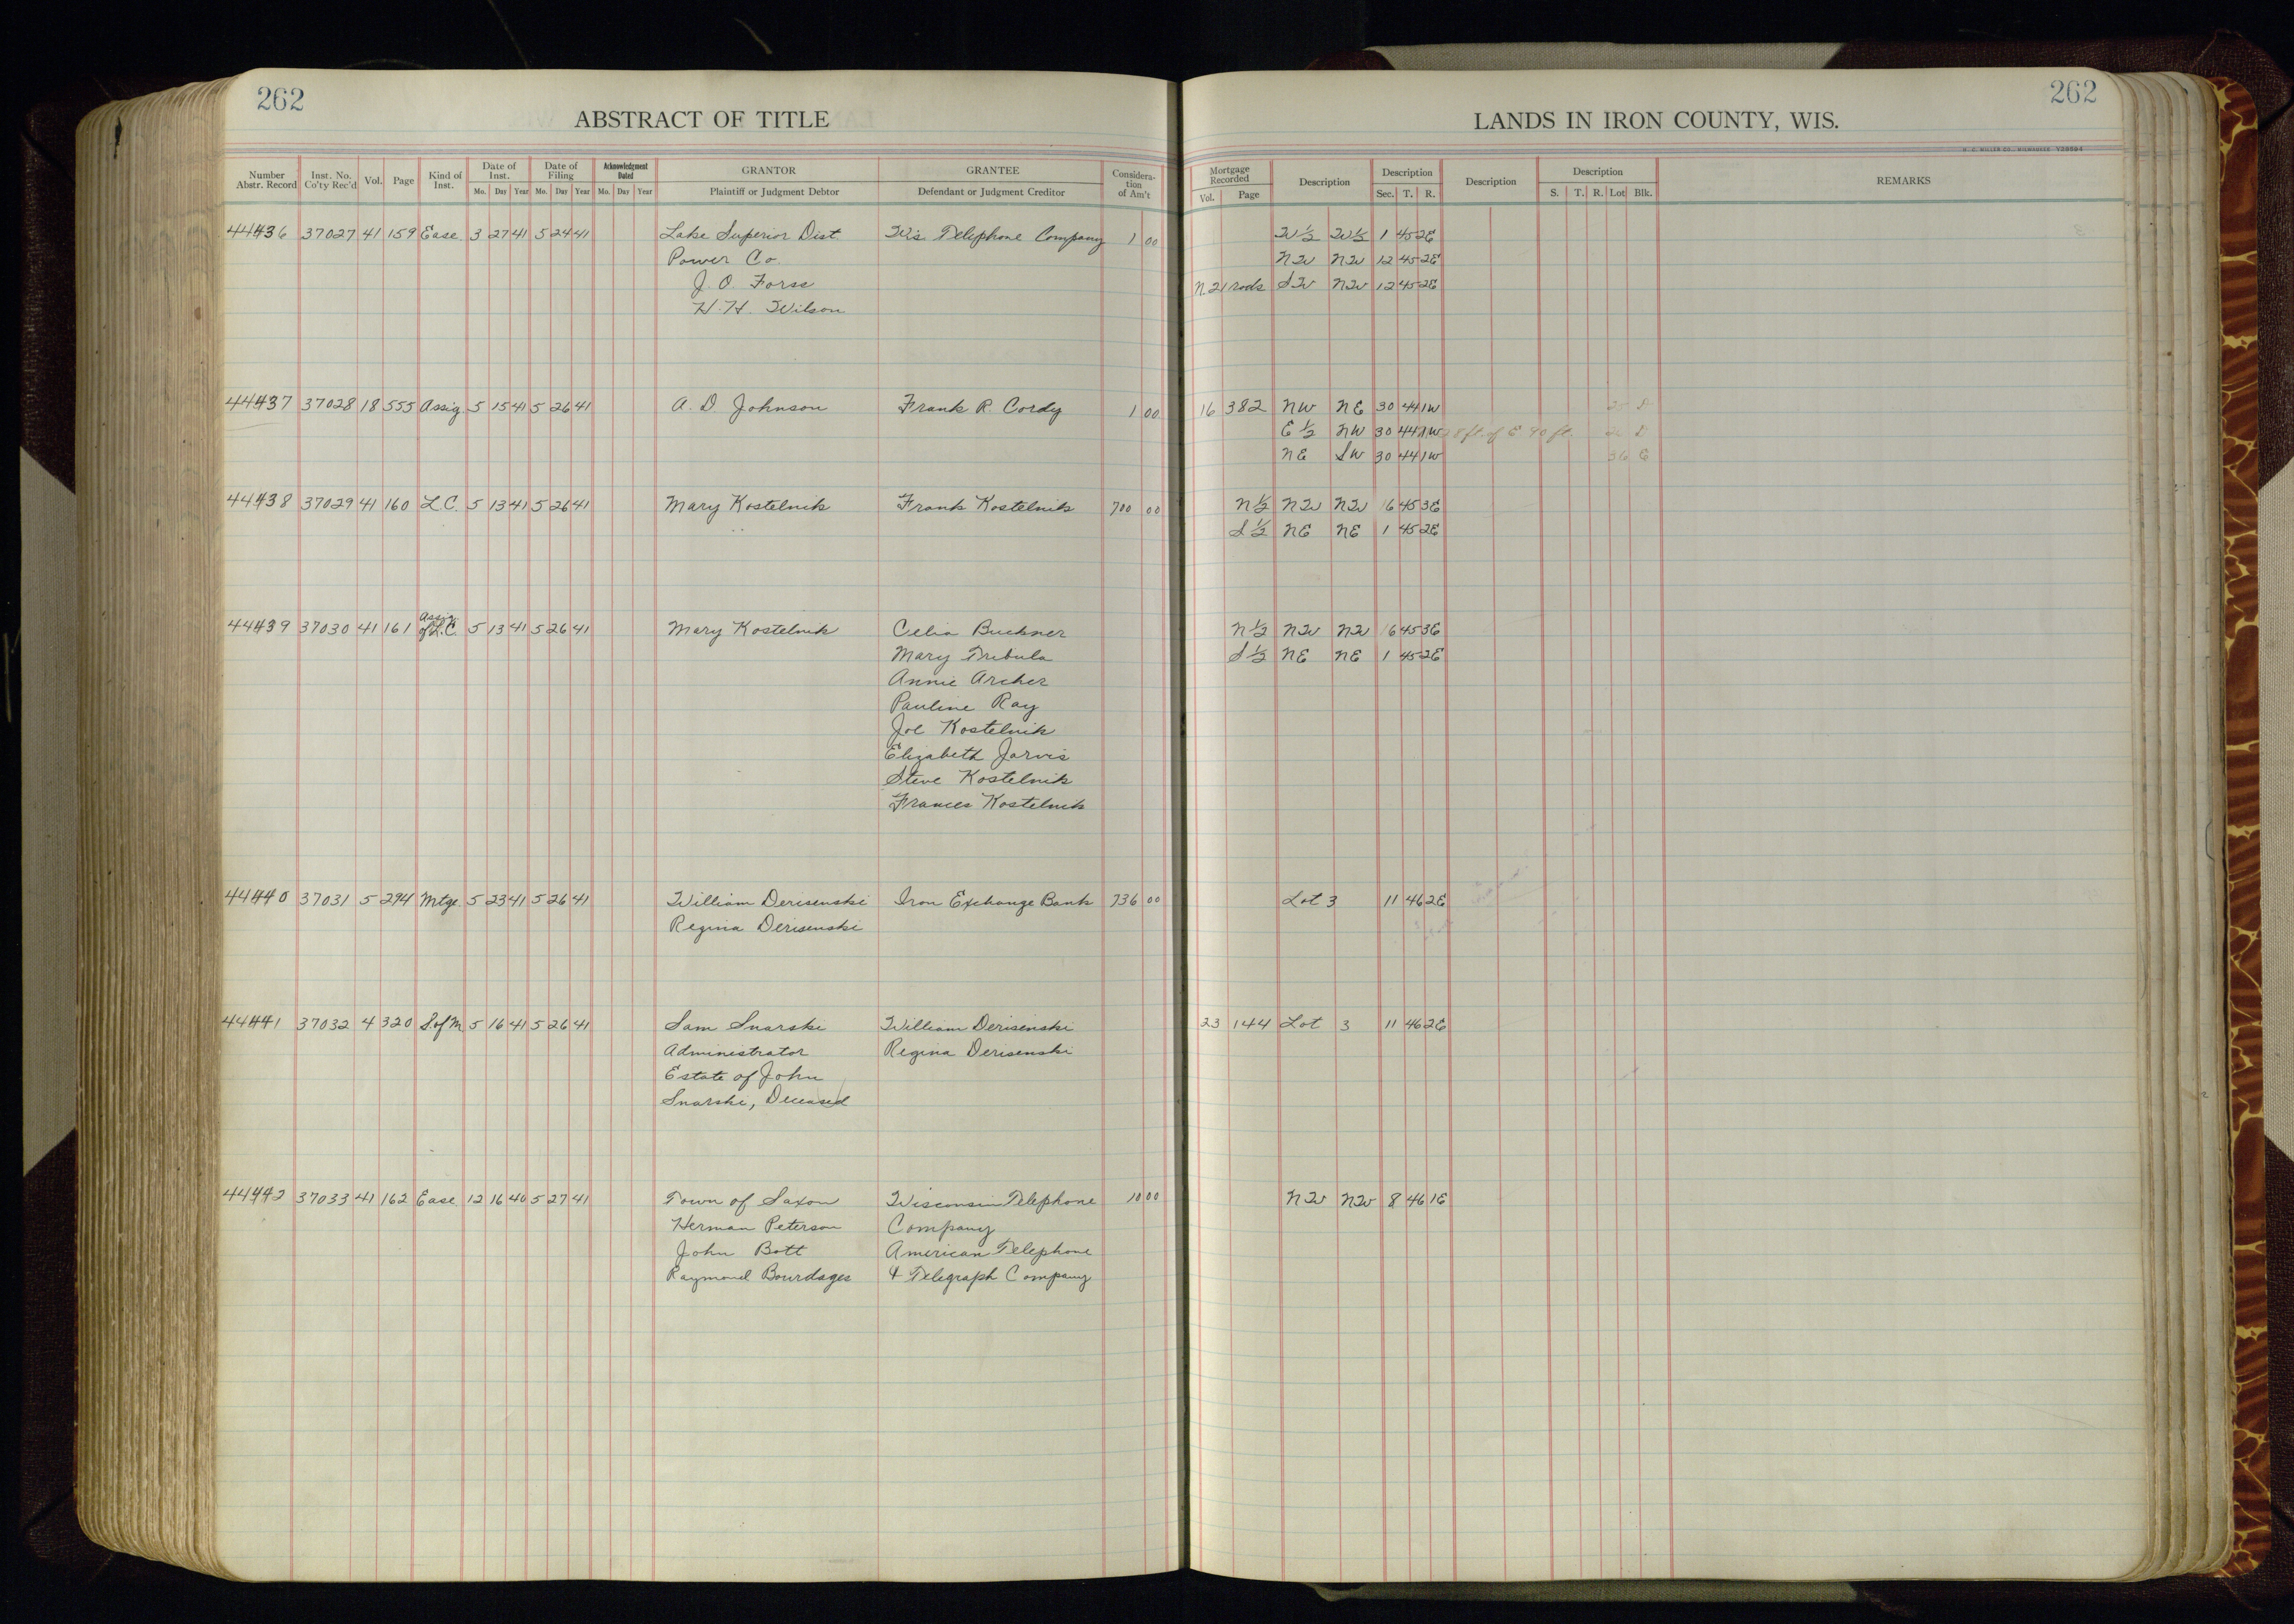 262
ABSTRACT OF TITLE
LANDS IN IRON COUNTY, WIS.
262
Number Abstr. Record Inst. No. Co'ty Rec'd Vol. Page Kind of Inst. Date of Inst. Mo. Day Year Date of Filing Mo. Day Year Acknowledgment Dated Mo. Day Year GRANTOR Plaintiff or Judgment Debtor GRANTEE Defendant or Judgment Creditor Considera-tion of Am't Mortgage Recorded Vol. Page Description Description Sec. T. R. Description Description S. T. R. Lot Blk. REMARKS
44436 37027 41 159 Ease. 3 27 41 5 24 41 Lake Superior Dist. Wis. Telephone Company 1 00 W½ W½ 1 45 2E
Power Co. NW NW 12 45 2E
J. O. Forss N. 21 rods SW NW 12 45 2E
H. H. Wilson
44437 37028 18 555 Assig. 5 15 41 5 26 41 A. D Johnson Frank R. Cordy 1 00 16 382 NW NE 30 44 1W
E ½ NW 30 44 1W 8 ft. of E 90 ft.
NE SW 30 44 1W
44438 37029 41 160 L.C. 5 13 41 5 26 41 Mary Kostelnik Frank Kostelnik 700 00 N½ NW NW 16 45 3E
S½ NE NE 1 45 2E
44439 37030 41 161 Assig. of L.C. 5 13 41 5 26 41 Mary Kostelnik Celia Buckner N½ NW NW 16 45 3E
Mary Tribula S½ NE NE 1 45 2E
Annie Archer
Pauline Ray
Joe Kostelnik
Elizabeth Jarvis
Steve Kostelnik
Frances Kostelnik
44440 37031 5 294 Mtge. 5 23 41 5 26 41 William Derisenski Iron Exchange Bank 736 00 Lot 3 11 46 2E
Regina Derisenski
44441 37032 4 320 S.of M. 5 16 41 5 26 41 Sam Snarski William Derisenski 23 144 Lot 3 11 46 2E
Administrator Regina Derisenski
Estate of John
Snarski, Deceased
44442 37033 41 162 Ease 12 16 40 5 27 41 Town of Saxon Wisconsin Telephone 10 00 NW NW 8 46 1E
Herman Peterson Company
John Bott American Telephone
Raymond Bourdages & Telegraph Company